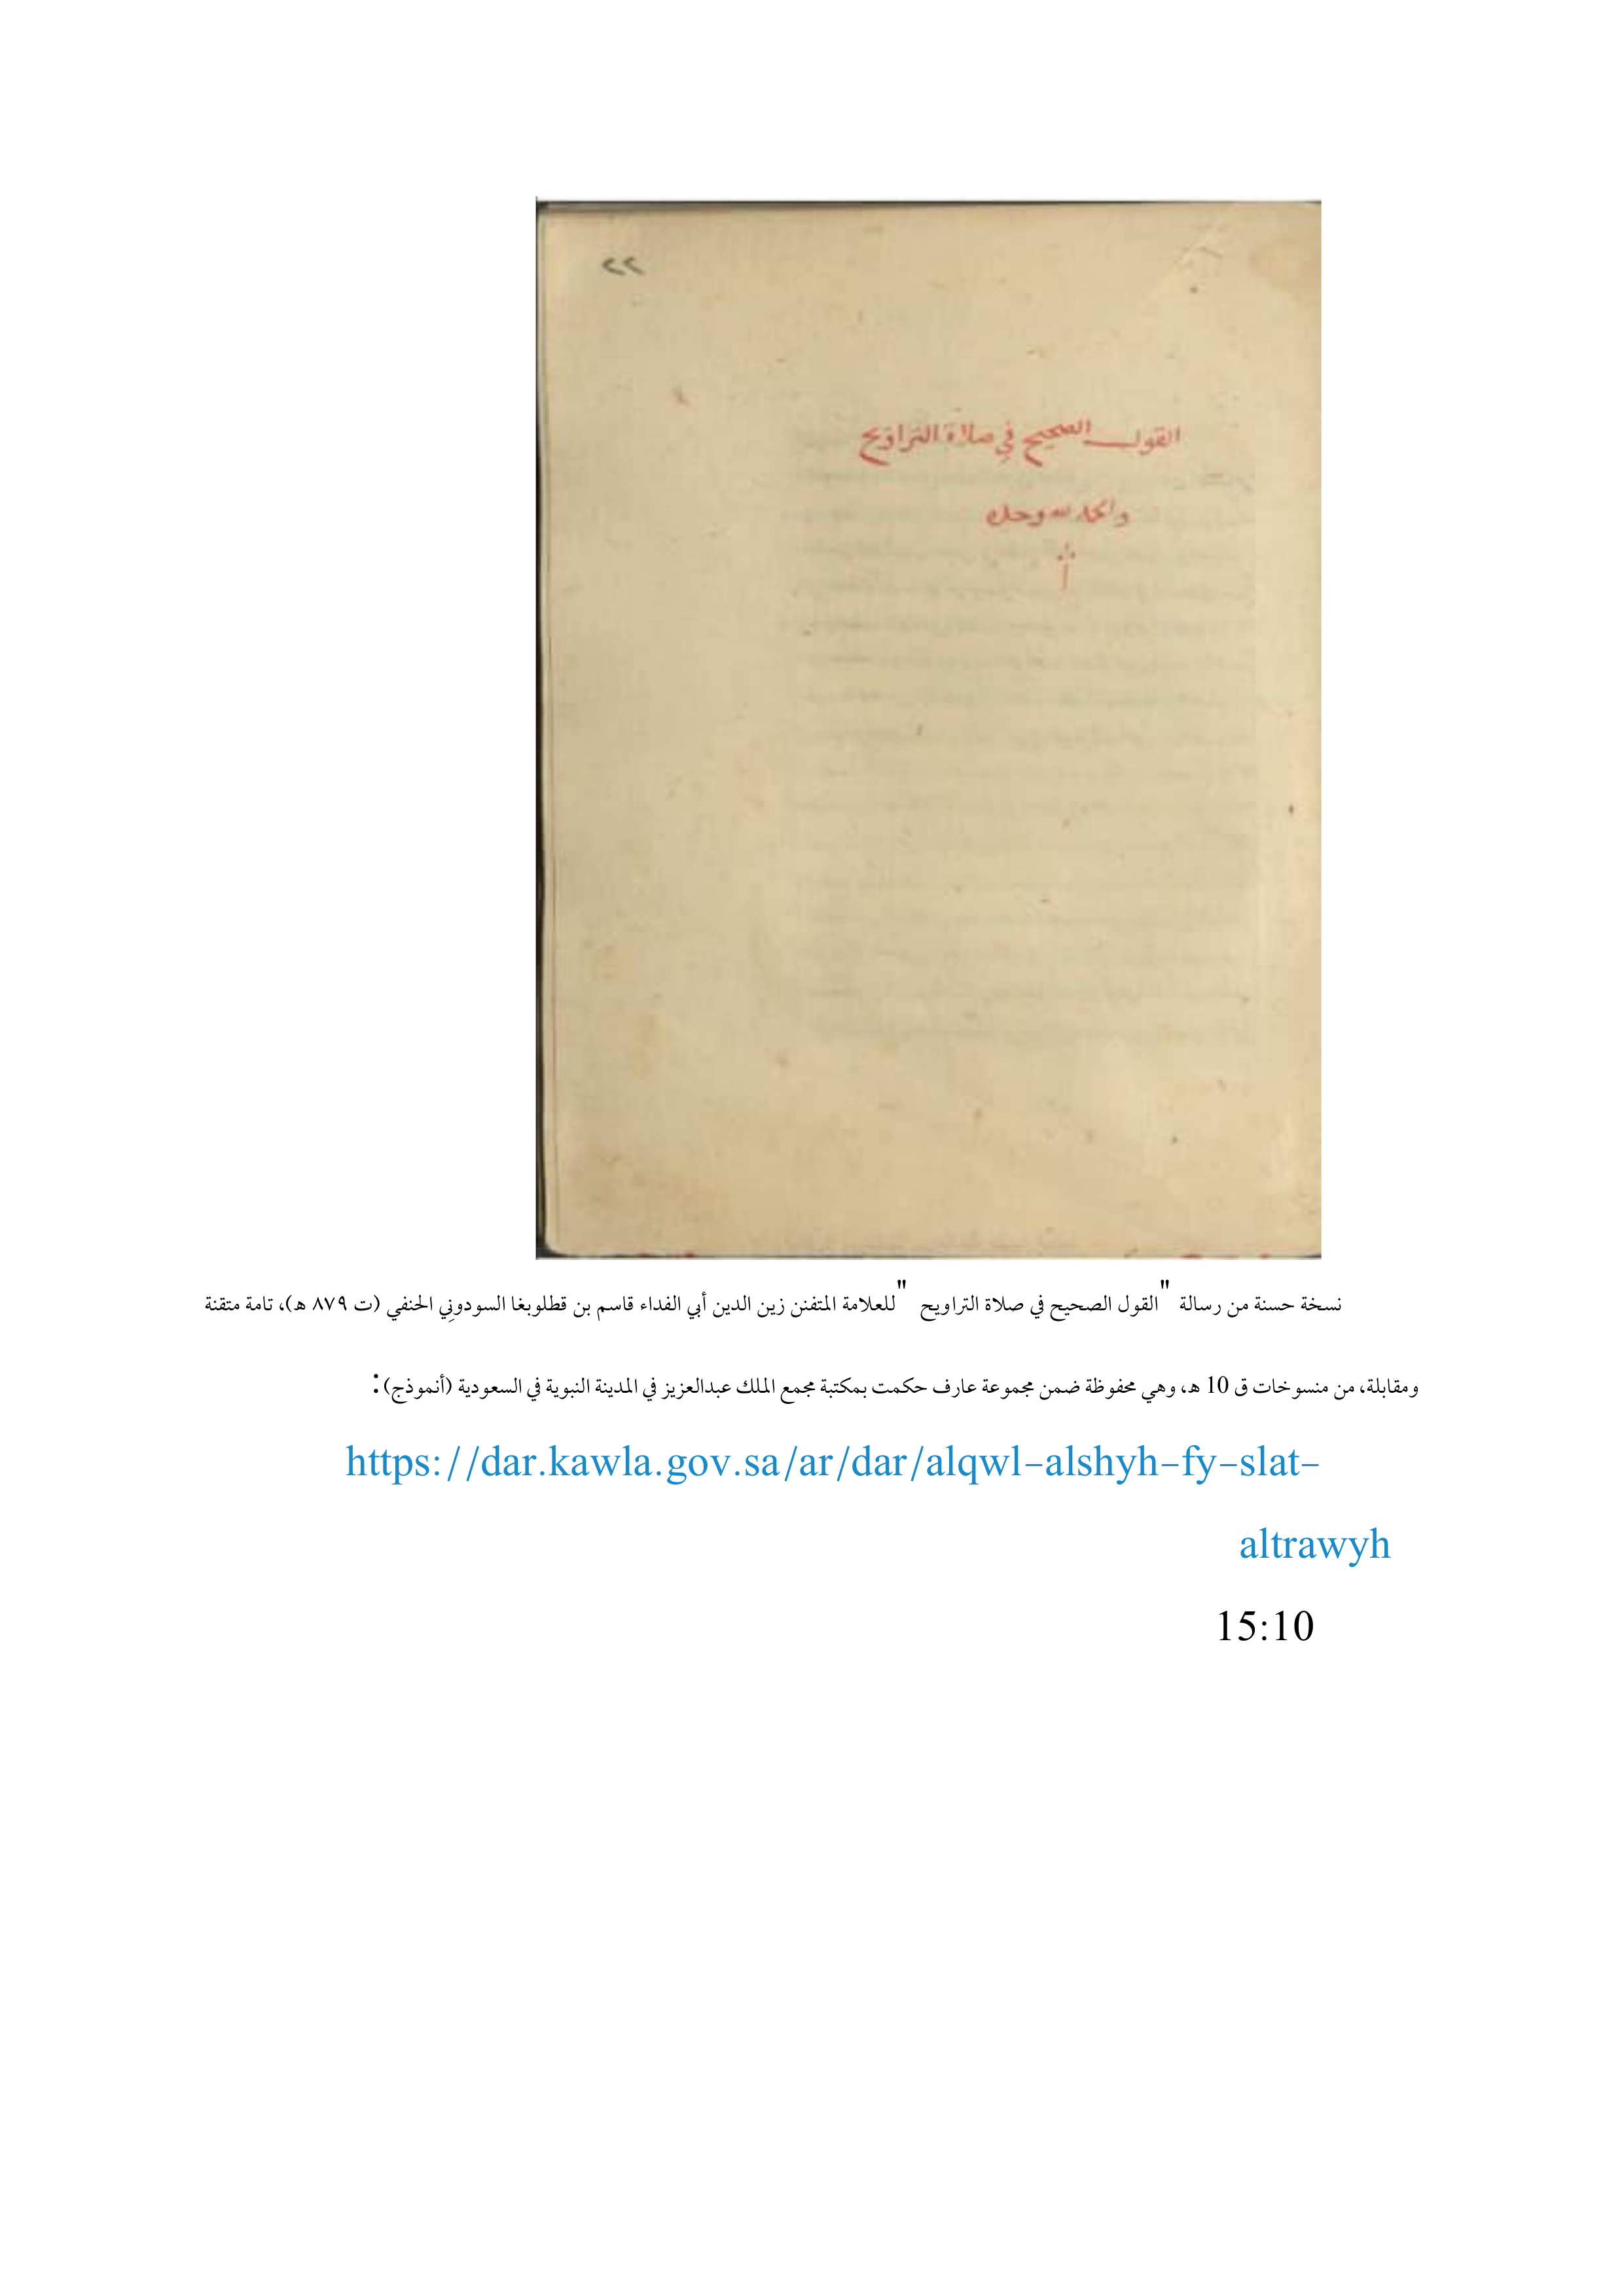 ٢٢
القول الصحيح في صلاة التراويح
والحمد لله وحده
نسخة حسنة من رسالة "القول الصحيح في صلاة التراويح " للعلامة المتفنن زين الدين أبي الفداء قاسم بن قطلوبغا السودوني الحنفي (ت ٨٧٩ هـ)، تامة متقنة
ومقابلة، من منسوخات ق 10 هـ، وهي محفوظة ضمن مجموعة عارف حكمت بمكتبة مجمع الملك عبدالعزيز في المدينة النبوية في السعودية (أنموذج):
https://dar.kawla.gov.sa/ar/dar/alqwl-alshyh-fy-slat-
altrawyh
15:10